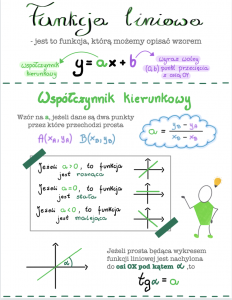 Funkcja liniowa
- jest to funkcja, którą możemy opisać wzorem
współczynnik kierunkowy
y = ax + b
wyraz wolny
(0,b) punkt przecięcia z osią OY
Współczynnik kierunkowy
Wzór na a, jeżeli dane są dwa punkty
przez które przechodzi prosta
A(xA, yA) B(xB, yB)
a = yB - yA / xB - xA
Jeżeli a>0, to funkcja
jest rosnąca
Jeżeli a=0, to funkcja
jest stała
Jeżeli a<0, to funkcja
jest malejąca
α
Jeżeli prosta będąca wykresem
funkcji liniowej jest nachylona
do osi OX pod kątem α, to
tgα = a